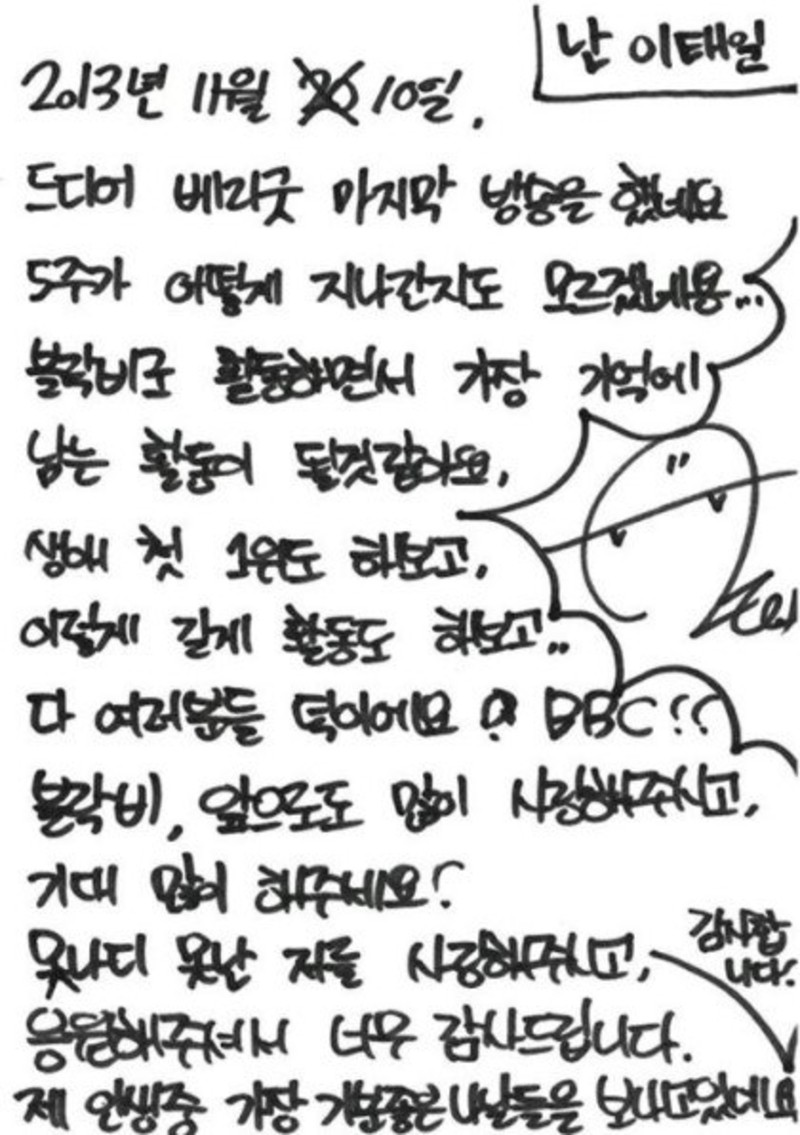 난 이태일
2013년 11월 10일.
드디어 베리굿 마지막 방송을 했네요
5주가 어떻게 지나간지도 모르겠네용...
블락비로 활동하면서 가장 기억에
남는 활동이 될것같아요,
생애 첫 1위도 해보고,
이렇게 길게 활동도 해보고..
다 여러분들 덕이에요 BBC!!
블락비, 앞으로도 많이 사랑해주시고,
기대 많이 해주세요!
못나디 못난 저를 사랑해주시고,
응원해주셔서 너무 감사드립니다.
감사합
니다!
제 인생중 가장 기분좋은 나날들을 보내고있어요